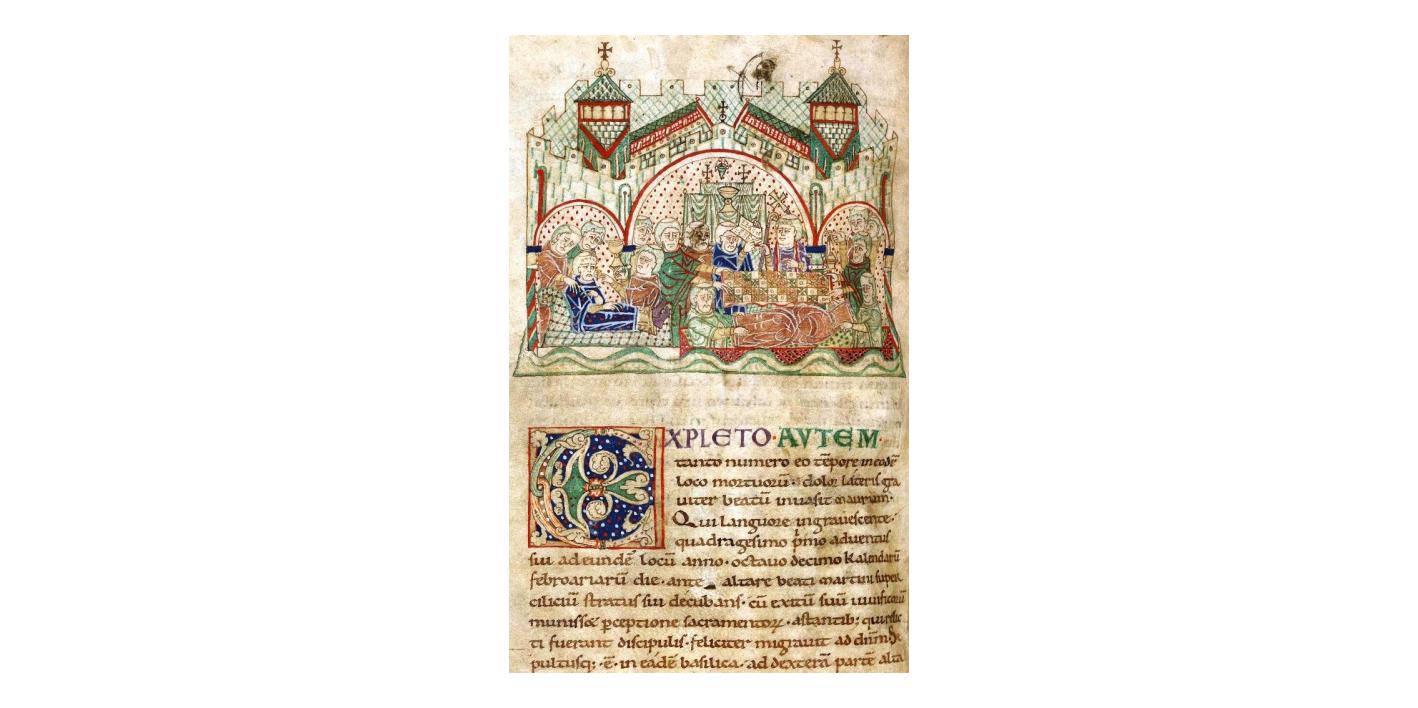 EXPLETO·AVTEM·
tanto numero eo tēpore in eodē
loco mortuorū· dolor lateris gra
uiter beatū inuasit maurum·
Qui languore ingrauescente·
quadragesimo p̄mo aduentus
sui ad eundē locū anno· octauo decimo kalendarū
febroariarū die· ante altare beati martini super
ciliciū stratus sui decubans· cū exitū suū uiuificorū
munisset ꝑceptione sacramentoꝝ· astantib;
ti fuerant discipulis· feliciter migrauit ad dn̄m· Se
pultusq; ·ē· in eadē basilica· ad dexterā partē alta